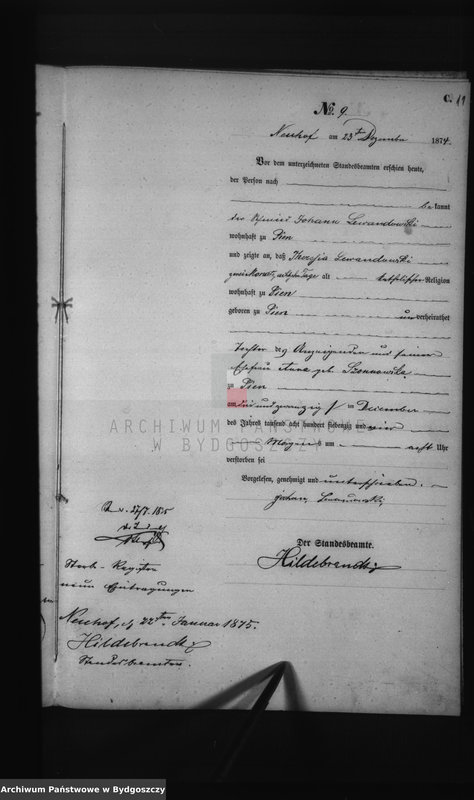 C. 11
No. 9.
Neuhof am 23ten Dezember 1874.
Vor dem unterzeichneten Standesbeamten erschien heute,
der Person nach
bekannt
der Johann Lewandowski
wohnhaft zu Pien
und zeigte an, daß Theresia Lewandowski
zwei Monat, Tage alt katholischer Religion
wohnhaft zu Pien
geboren zu Pien unverheirathet
Tochter des Anzeigenden und seiner
Ehefrau Anna geb.
zu Pien
am drei und zwanzig sten Dezember
des Jahres tausend acht hundert siebenzig und vier
Morgens um acht Uhr
verstorben sei
Vorgelesen, genehmigt und unterschrieben.
Johann Lewandowski
Der Standesbeamte.
Hildebrandt
Sterb-Register
neun Eintragungen
Neuhof, d 22ten Januar 1875.
Hildebrandt
Standesbeamter.
ARCHIWUM PAŃSTWOWE
W BYDGOSZCZY
Archiwum Państwowe w Bydgoszczy